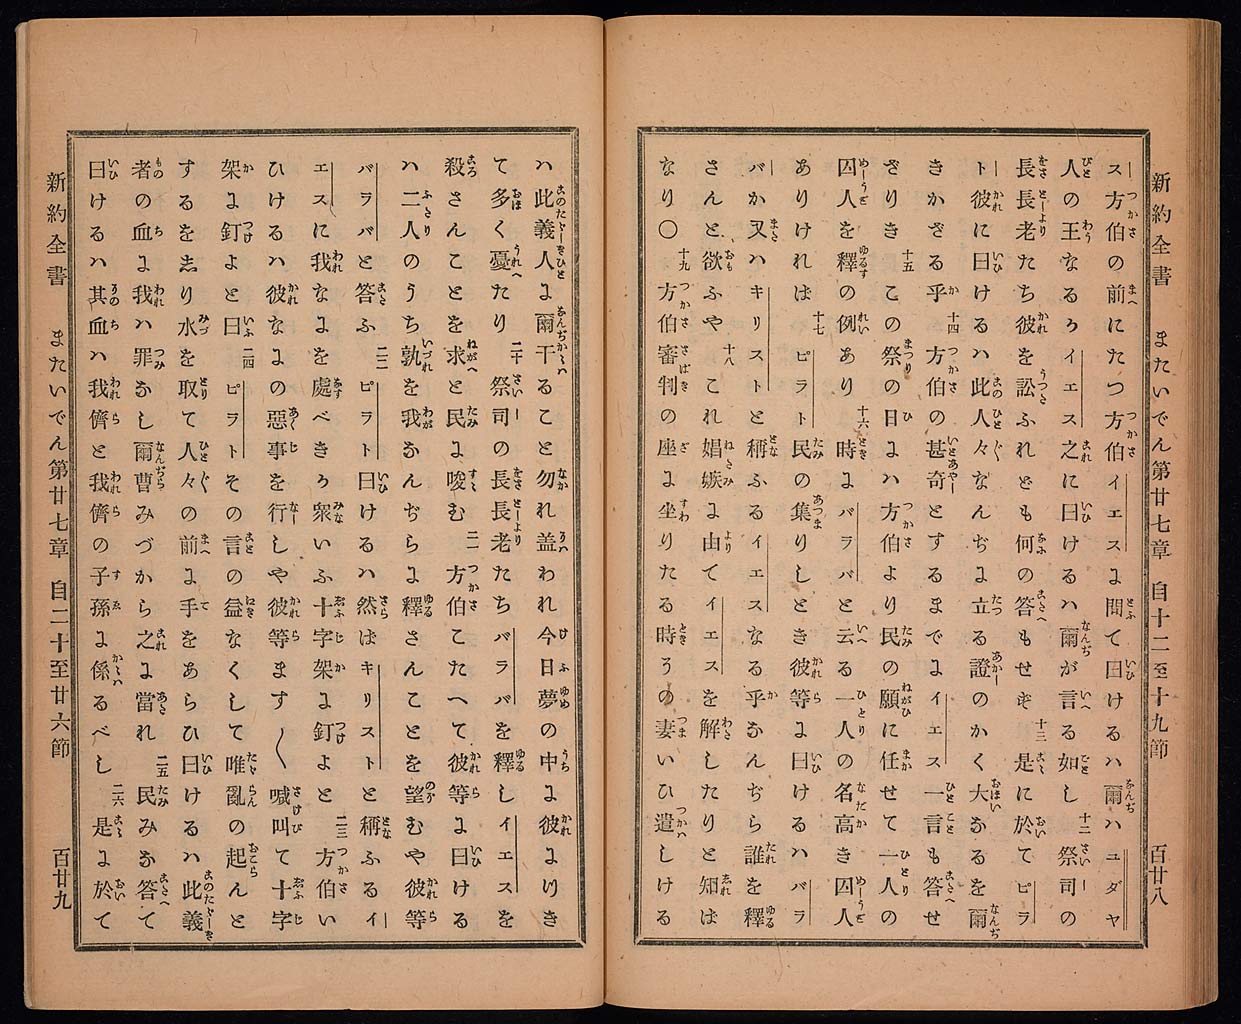 新約全書　またいでん第廿七章　自十二至十九節　百廿八
ス方伯の前にたつ方伯イエスに問て曰けるハ爾ハユダヤ
人の王なるかイエス之に曰けるハ爾が言る如し 十二 祭司の
長長老たち彼を訟ふれども何の答もせず 十三 是に於てピラ
ト彼に曰けるハ此人々なんぢに立る證のかく大なるを爾
きかざる乎 十四 方伯の甚奇とするまでにイエス一言も答せ
ざりき 十五 この祭の日にハ方伯より民の願に任せて一人の
囚人を釋の例あり 十六 時にバラバと云る一人の名高き囚人
ありければ 十七 ピラト民の集りしとき彼等に曰けるハバラ
バか又ハキリストと稱ふるイエスなる乎なんぢら誰を釋
さんと欲ふや 十八 これ娼嫉に由てイエスを解したりと知ば
なり〇 十九 方伯審判の座に坐りたる時その妻いひ遣しける
ハ此義人に爾干ること勿れ蓋われ今日夢の中に彼につき
て多く憂たり 二十 祭司の長長老たちバラバを釋しイエスを
殺さんことを求と民に唆む 二一 方伯こたへて彼等に曰ける
ハ二人のうち孰を我なんぢらに釋さんことを望むや彼等
バラバと答ふ 二二 ピラト曰けるハ然ばキリストと稱ふるイ
エスに我なにを處べきか衆いふ十字架に釘よと 二三 方伯い
ひけるハ彼なにの惡事を行しや彼等ます〱喊叫て十字
架に釘よと曰 二四 ピラトその言の益なくして唯亂の起んと
するを志り水を取て人々の前に手をあらひ曰けるハ此義
者の血に我ハ罪なし爾曹みづから之に當れ 二五 民みな答て
曰けるハ其血ハ我儕と我儕の子孫に係るべし 二六 是に於て
新約全書　またいでん第廿七章　自二十至廿六節　百廿九